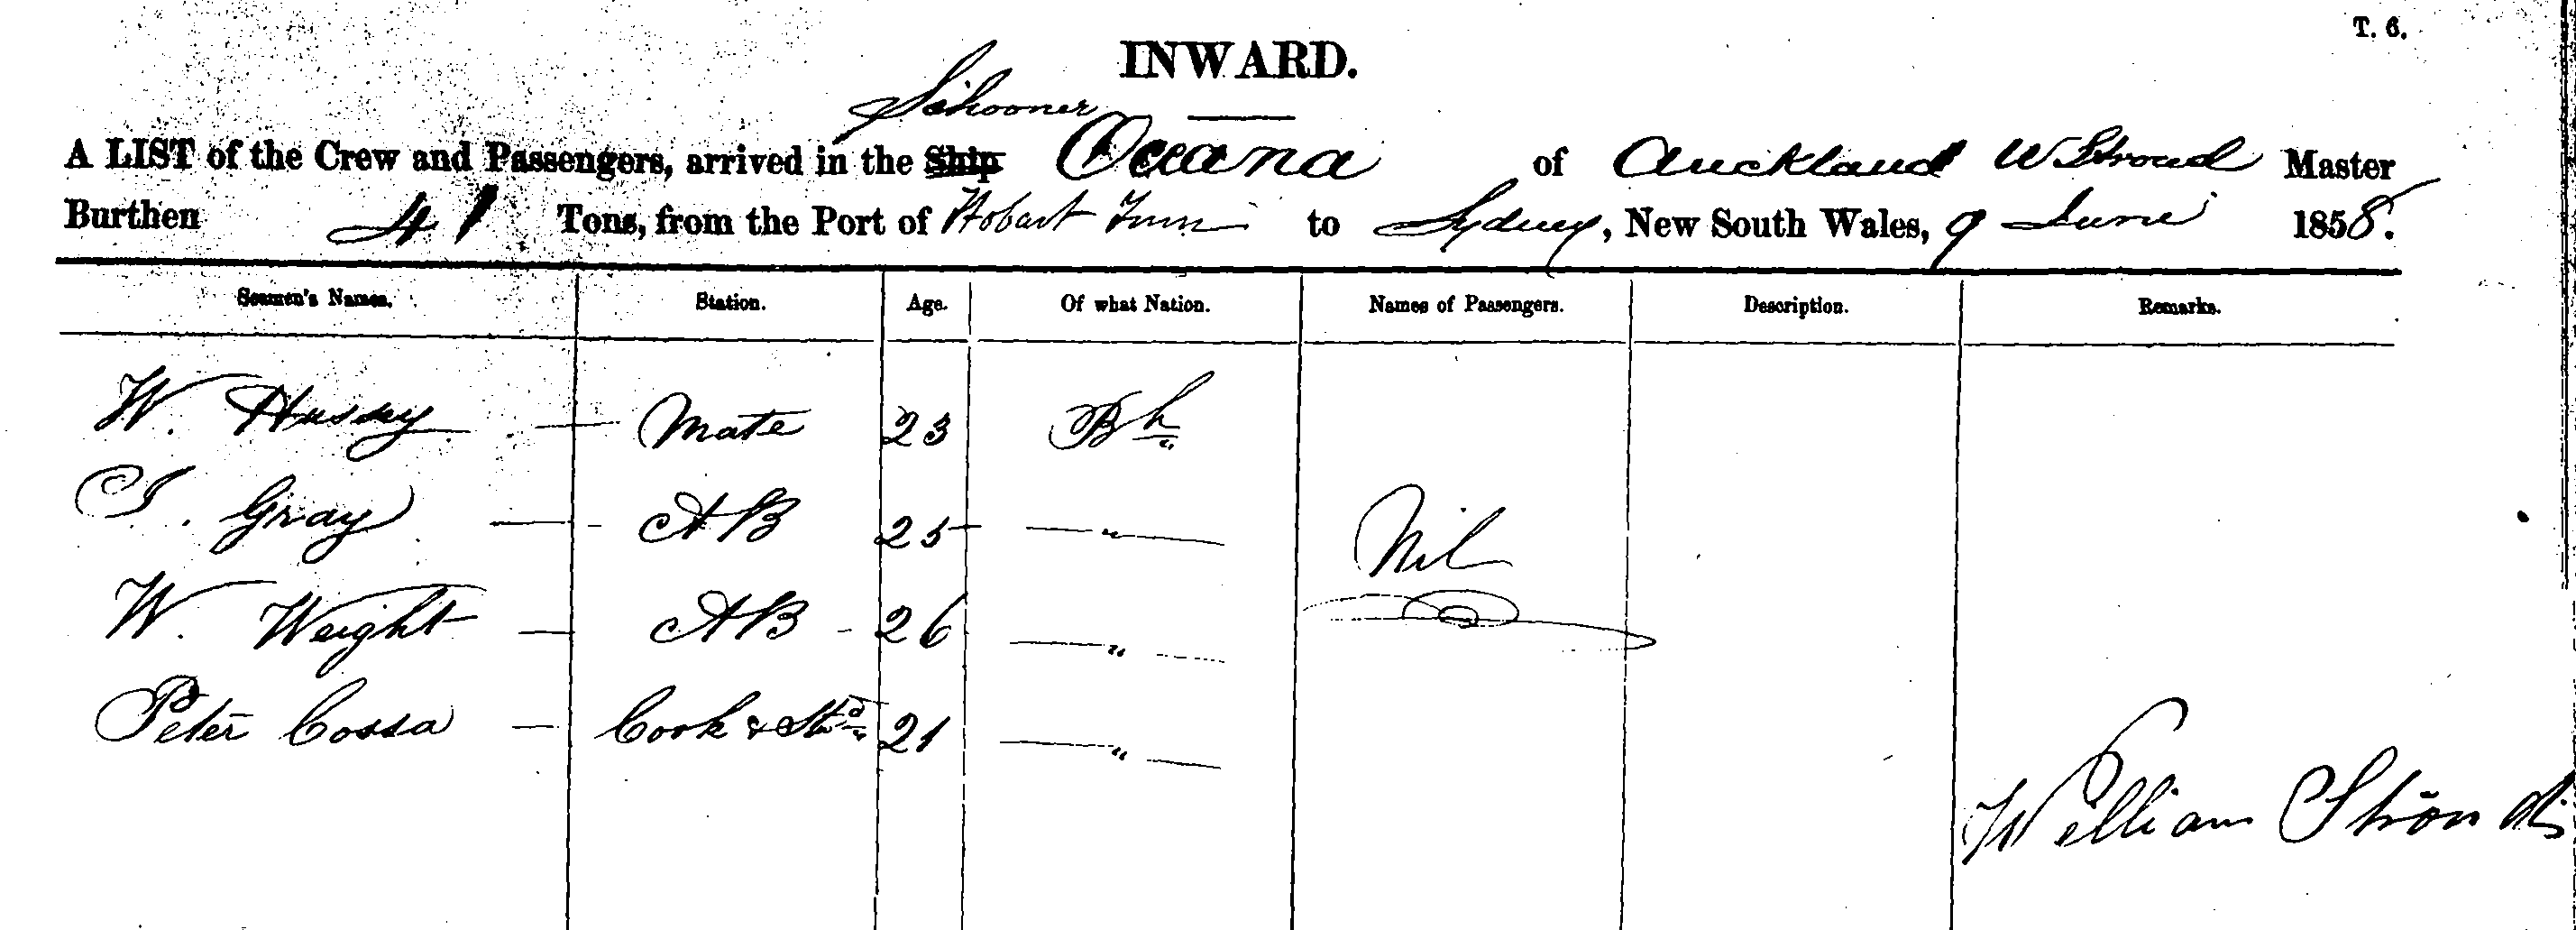 T. 6.
INWARD.
Schooner
A LIST of the Crew and Passengers, arrived in the Ship Oceana of Auckland W Stroud Master
Burthen 41 Tons, from the Port of Hobart Town to Sydney, New South Wales, 9 June 1858.
Seamen's Names. Station. Age. Of what Nation. Names of Passengers. Description. Remarks.
W. Hussey — Mate 23 Bh
J. Gray — AB 25 — " —
Nil
W. Weight — AB - 26 — " —
Peter Cossa — Cook & Std 21 — " —
William Stroud